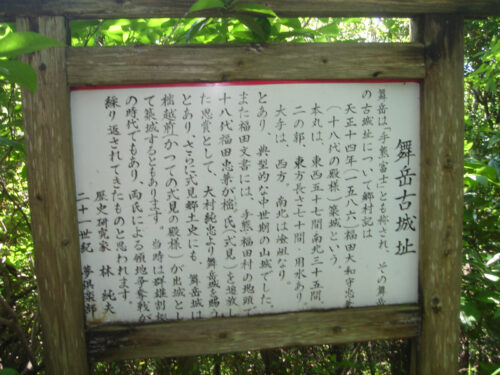 舞岳古城址
舞岳は「手熊富士」とも称され、その舞岳
の古城址について郷村記は
天正十四年（一五八六）福田大和守忠兼
（十八代の殿様）築城という。
本丸は、東西五十七間南北三十五間、
二の郭、東方長さ七十間、用水あり、
大手は、西方、南北は嶮岨なり。
とあり、典型的な中世期の山城でした。
また福田文書には、手熊福田村の地頭で
十八代福田忠兼が樒氏（式見）を追放し
た恩賞として、大村純忠より舞岳城を賜う
とあり、さらに式見郷土史にも、舞岳城は
樒越前（かつての式見の殿様）が出城とし
て築城するともあります。当時は群雄割拠
の時代でもあり、両氏による領地争奪戦が
繰り返されてきたものと思われます。
歴史研究家　林　純夫
二十一世紀　夢倶楽部